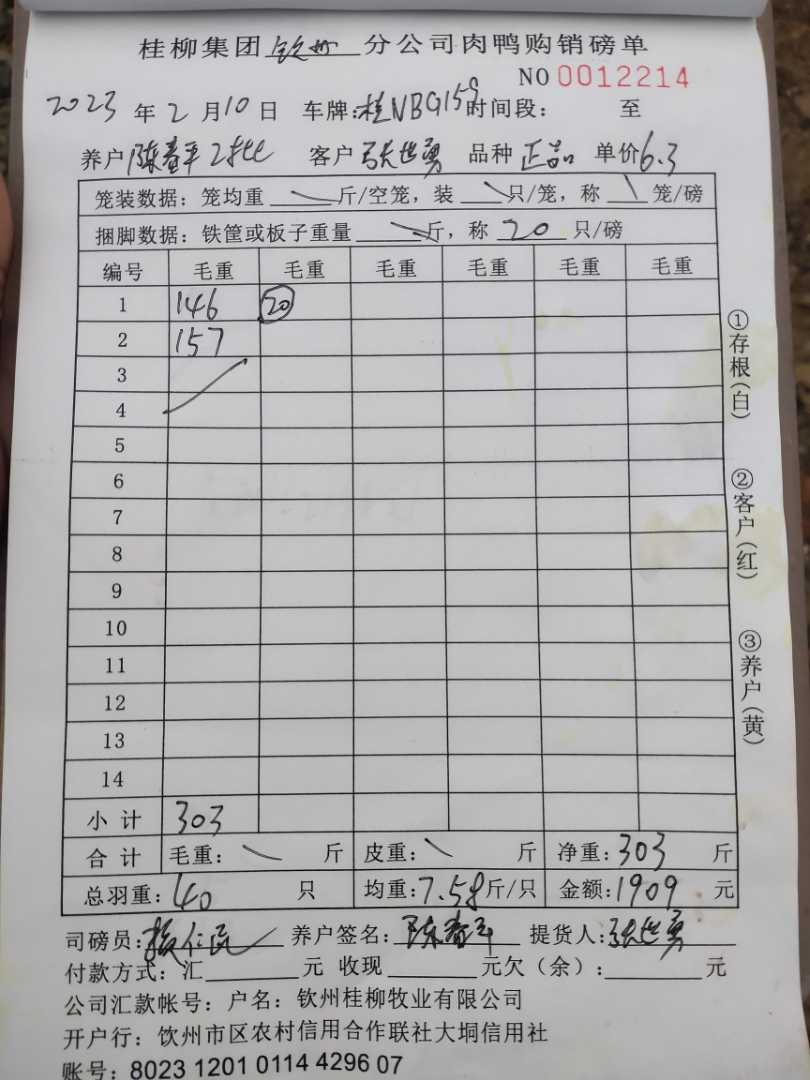 桂柳集团 钦州 分公司肉鸭购销磅单
NO 0012214
2023 年 2 月 10 日 车牌:桂NBG159 时间段: 至
养户 陈春平2批 客户 张世勇 品种 正品 单价 6.3
笼装数据: 笼均重 斤/空笼, 装 只/笼, 称 笼/磅
捆脚数据: 铁筐或板子重量 斤, 称 20 只/磅
编号 毛重 毛重 毛重 毛重 毛重 毛重
1 146 20
2 157
3
4
5
6
7
8
9
10
11
12
13
14
小计 303
合计 毛重: 斤 皮重: 斤 净重: 303 斤
总羽重: 40 只 均重: 7.58 斤/只 金额: 1909 元
司磅员: 养户签名: 陈春平 提货人: 张世勇
付款方式: 汇 元 收现 元欠(余): 元
公司汇款帐号: 户名: 钦州桂柳牧业有限公司
开户行: 饮州市区农村信用合作联社大垌信用社
账号: 8023 1201 0114 4296 07
①存根(白)
②客户(红)
③养户(黄)